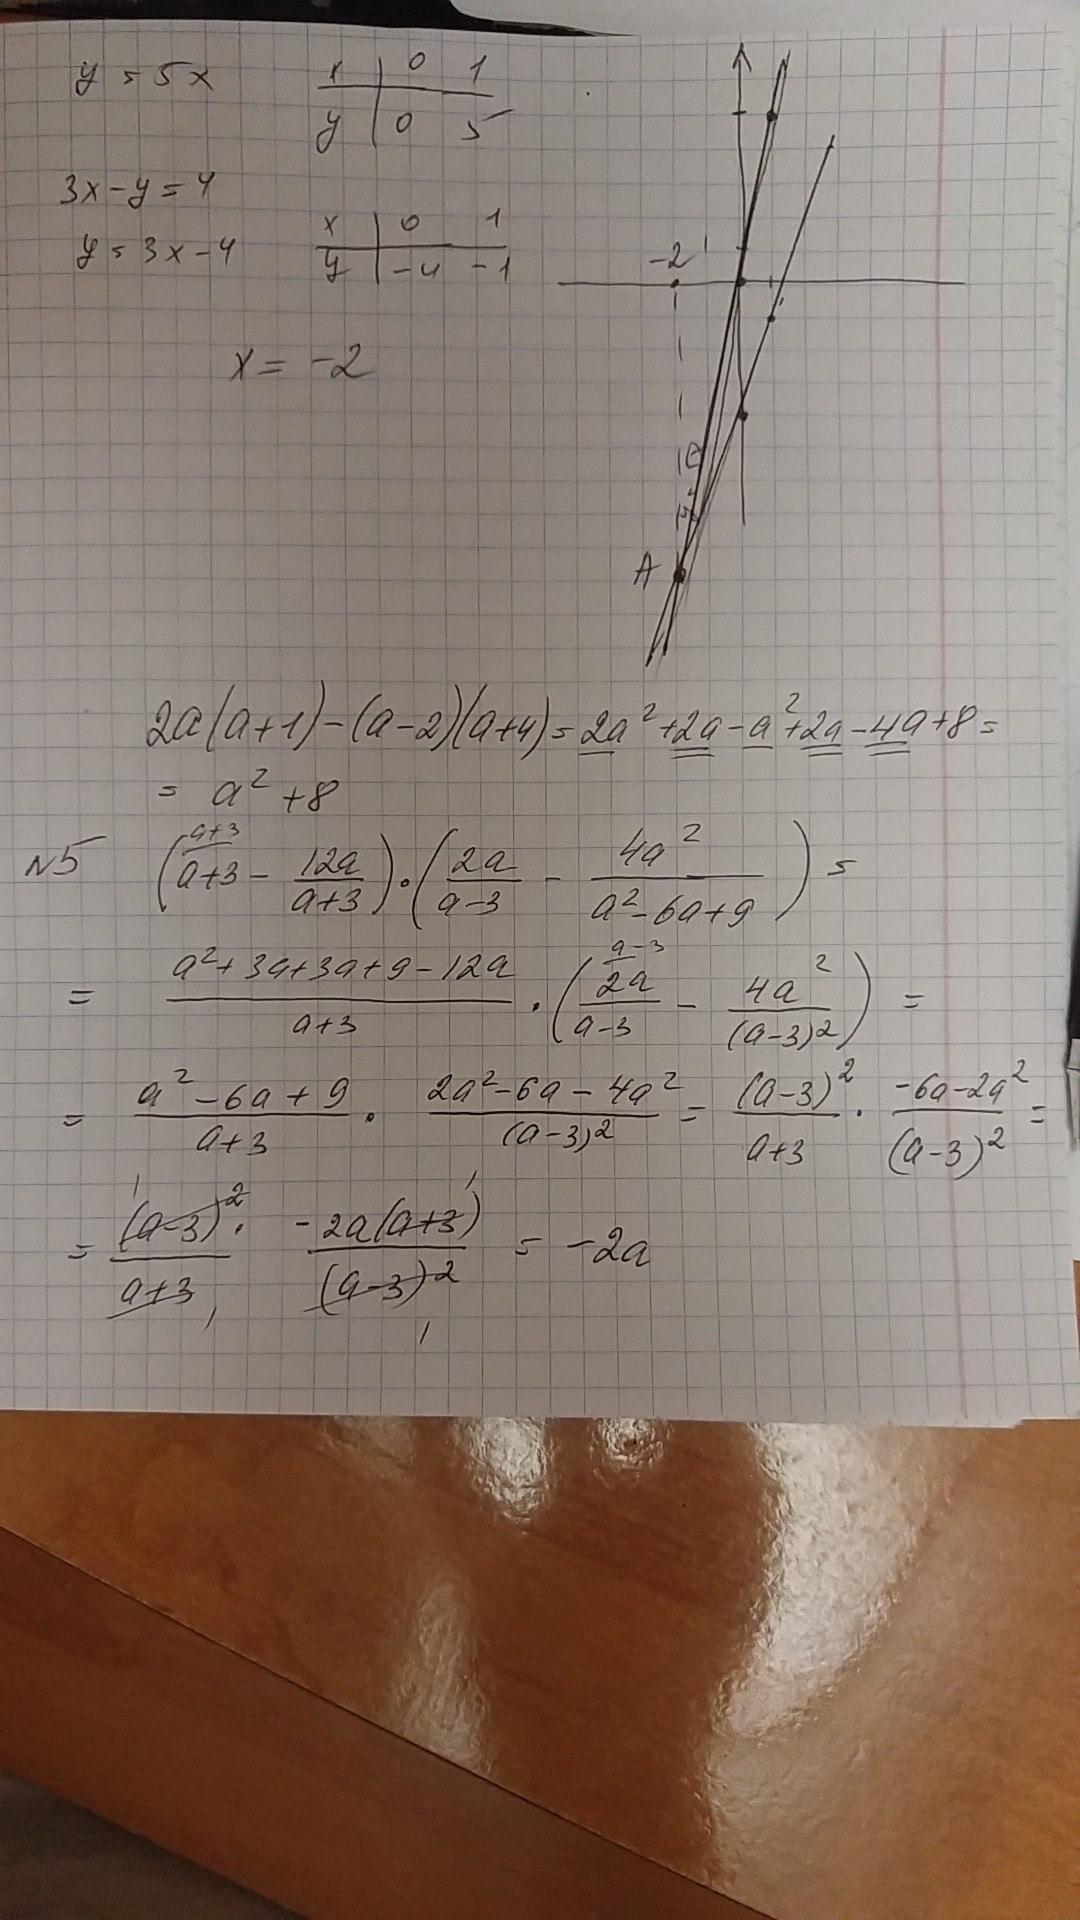 y = 5x
x | 0 1
y | 0 5
3x - y = 4
y = 3x - 4
x | 0 1
y | -4 -1
x = -2
-2
1
A
2a(a+1) - (a-2)(a+4) = 2a² + 2a - a² + 2a - 4a + 8 =
= a² + 8
N5 (a+3 (a+3) - 12a/(a+3)) · (2a/(a-3) - 4a²/(a² - 6a + 9)) =
= (a² + 3a + 3a + 9 - 12a)/(a+3) · (2a (a-3)/(a-3) - 4a²/(a-3)²) =
= (a² - 6a + 9)/(a+3) · (2a² - 6a - 4a²)/(a-3)² = (a-3)²/(a+3) · (-6a - 2a²)/(a-3)² =
= (a-3)²/(a+3) · -2a(a+3)/(a-3)² = -2a